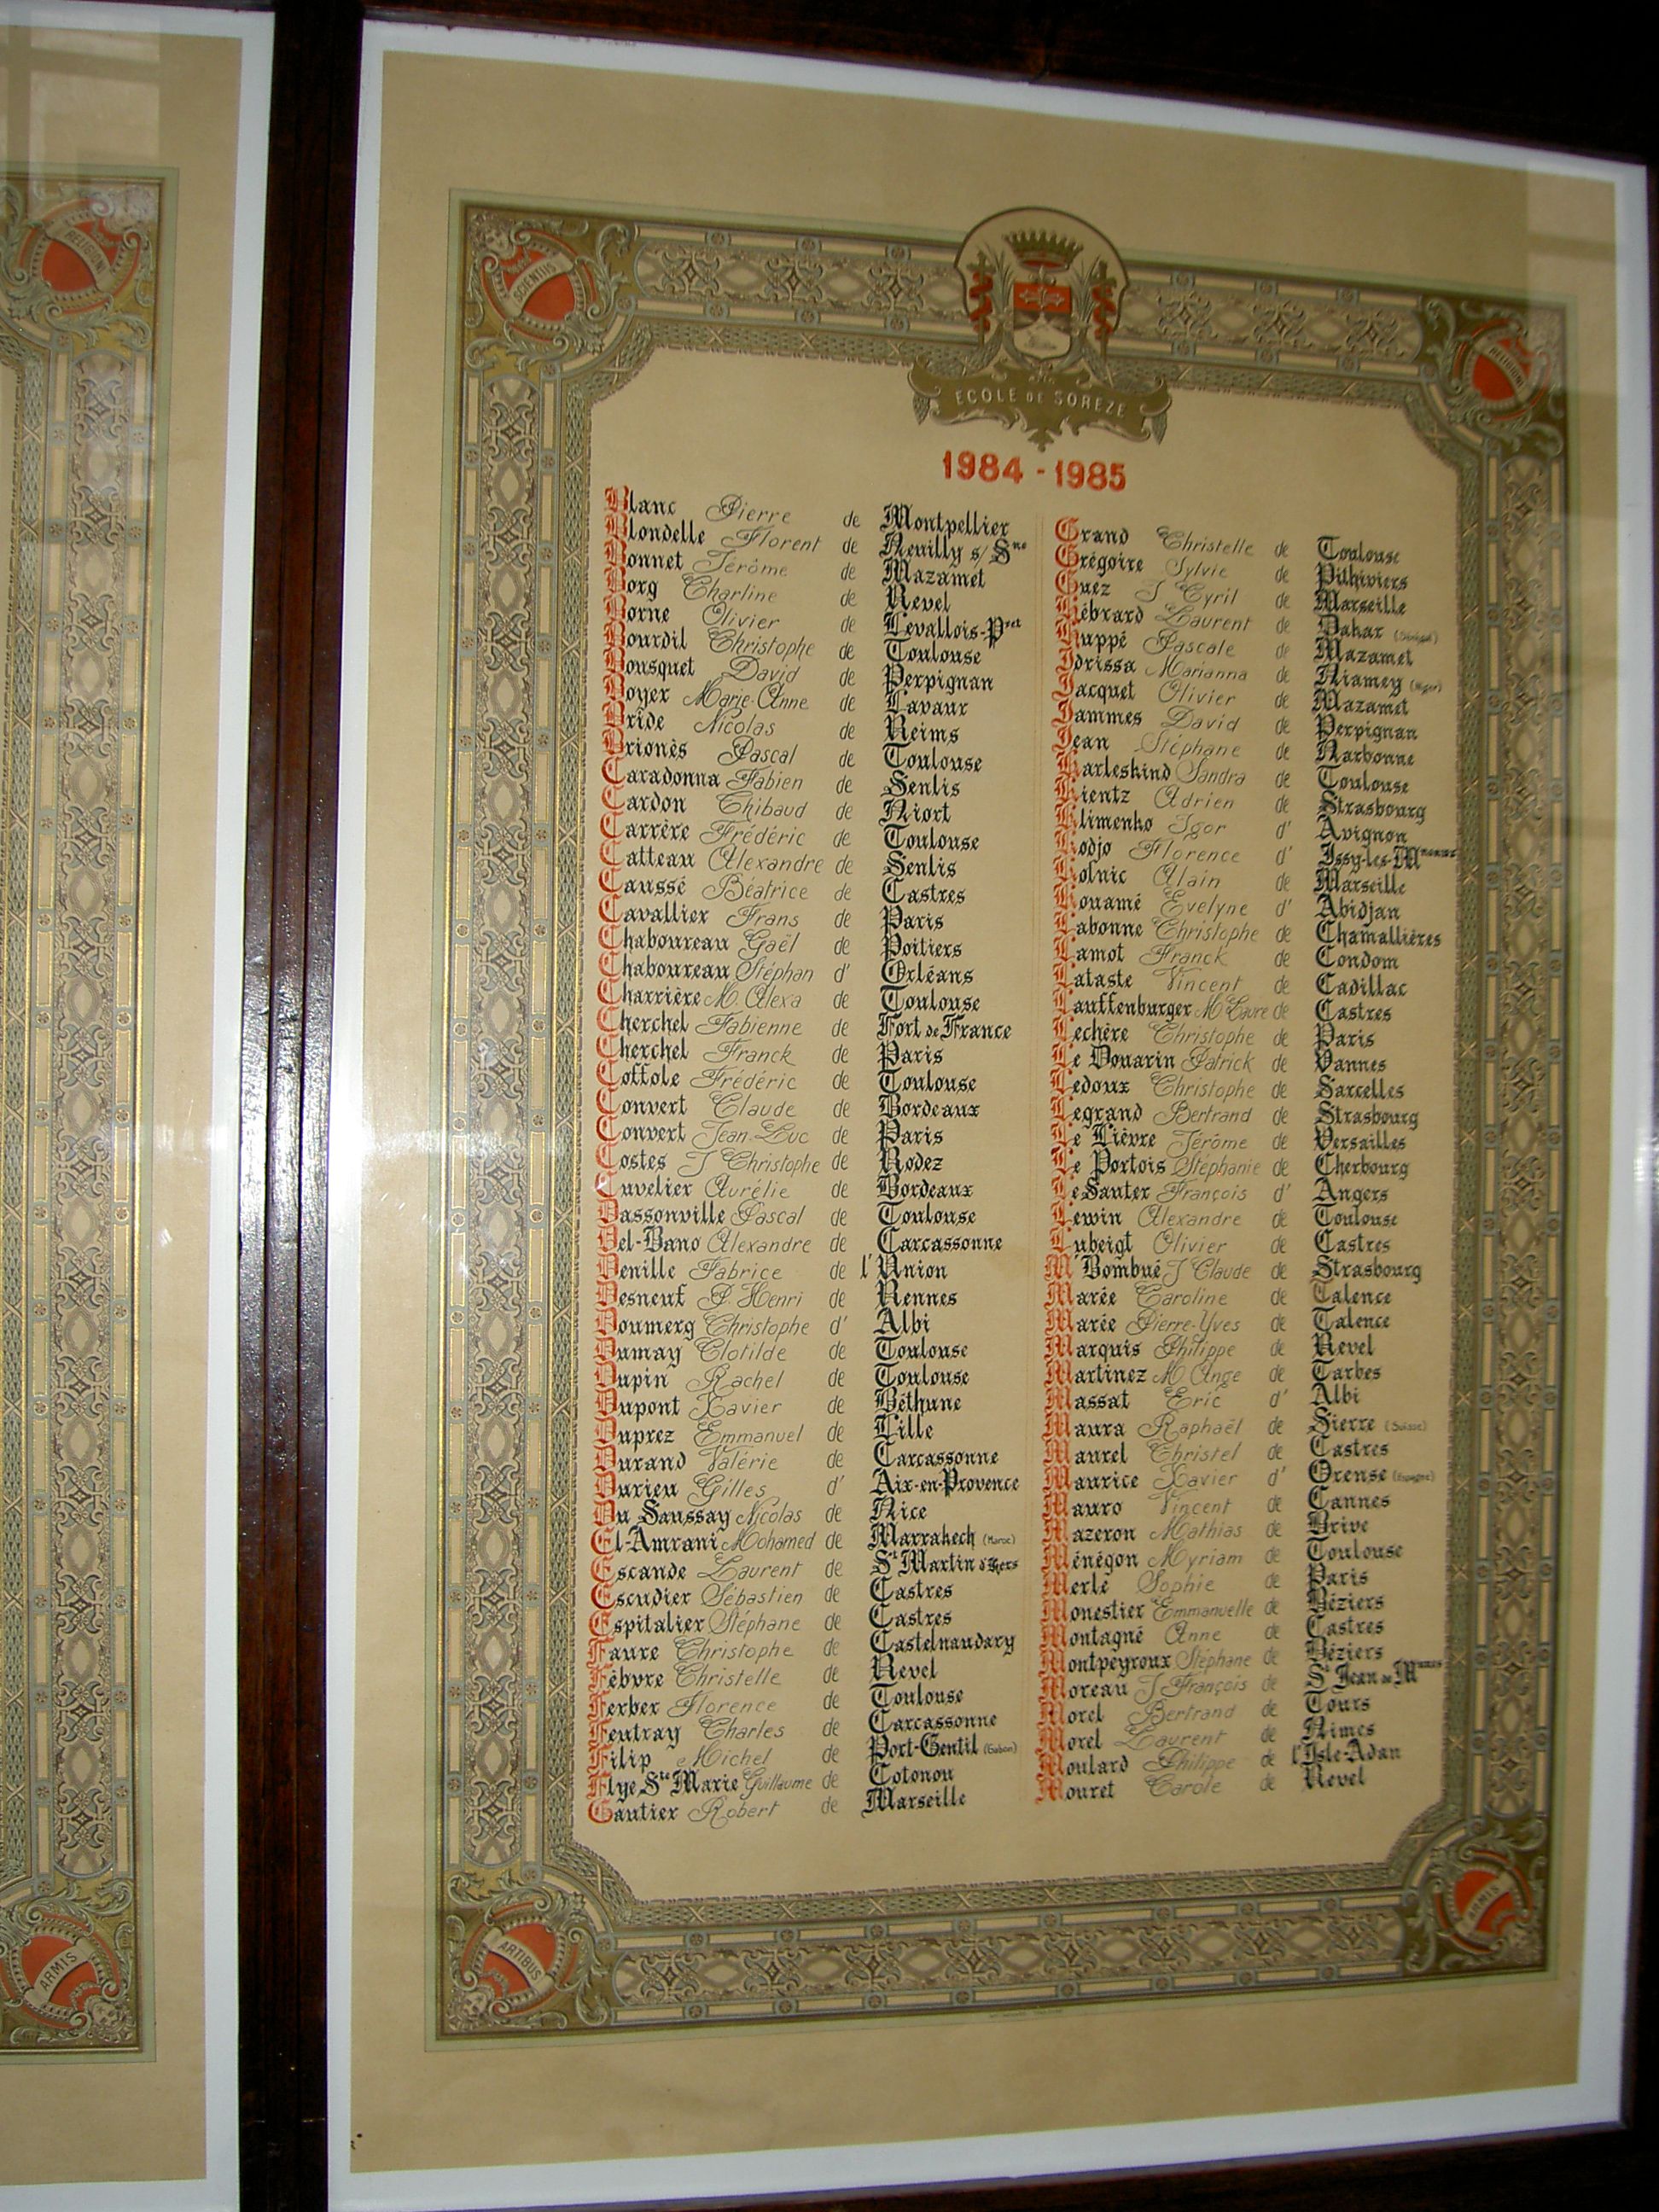 RELIGIONI
ARMIS
SCIENTIIS
RELIGIONI
ECOLE DE SOREZE
1984 - 1985
Blanc Pierre de Montpellier
Blondelle Florent de Neuilly s/ Sne
Bonnet Jérôme de Mazamet
Borg Charline de Revel
Borne Olivier de Levallois-Pret
Bourdil Christophe de Toulouse
Bousquet David de Perpignan
Boyer Marie-Anne de Lavaur
Bride Nicolas de Reims
Brionès Pascal de Toulouse
Caradonna Fabien de Senlis
Cardon Thibaud de Niort
Carrère Frédéric de Toulouse
Catteau Alexandre de Senlis
Caussé Béatrice de Castres
Cavallier Frans de Paris
Chaboureau Gaël de Poitiers
Chaboureau Stéphan d' Orléans
Charrière M. Alexa de Toulouse
Cherchel Fabienne de Fort de France
Cherchel Franck de Paris
Coffole Frédéric de Toulouse
Convert Claude de Bordeaux
Convert Jean-Luc de Paris
Costes J Christophe de Rodez
Cuvelier Aurélie de Bordeaux
Dassonville Pascal de Toulouse
Del-Bano Alexandre de Carcassonne
Denille Fabrice de l'Union
Desneuf P. Henri de Rennes
Doumerg Christophe d' Albi
Dumay Clotilde de Toulouse
Dupin Rachel de Toulouse
Dupont Xavier de Béthune
Duprez Emmanuel de Lille
Durand Valérie de Carcassonne
Durieu Gilles d' Aix-en-Provence
Du Saussay Nicolas de Nice
El-Amrani Mohamed de Marrakech (Maroc)
Escande Laurent de St Martin d'Hers
Escudier Sébastien de Castres
Espitalier Stéphane de Castres
Faure Christophe de Castelnaudary
Febvre Christelle de Revel
Ferber Florence de Toulouse
Feutray Charles de Carcassonne
Filip Michel de Port-Gentil (Gabon)
Flye Ste Marie Guillaume de Cotonou
Gautier Robert de Marseille
Grand Christelle de Toulouse
Grégoire Sylvie de Pithiviers
Guez J Cyril de Marseille
Hébrard Laurent de Dakar (Sénégal)
Huppé Pascale de Mazamet
Idrissa Marianna de Niamey (Niger)
Jacquet Olivier de Mazamet
Jammes David de Perpignan
Jean Stéphane de Narbonne
Karleskind Sandra de Toulouse
Kientz Adrien de Strasbourg
Klimenko Igor d' Avignon
Kodjo Florence d' Issy-les-Mneaux
Kolnic Alain de Marseille
Kouamé Evelyne d' Abidjan
Labonne Christophe de Chamallières
Lamot Franck de Condom
Lataste Vincent de Cadillac
Lauffenburger M Laure de Castres
Lechère Christophe de Paris
Le Douarin Patrick de Vannes
Ledoux Christophe de Sarcelles
Legrand Bertrand de Strasbourg
Le Lièvre Jérôme de Versailles
Le Portois Stéphanie de Cherbourg
Le Sauter François d' Angers
Lewin Alexandre de Toulouse
Lubeigt Olivier de Castres
M'Bombué J Claude de Strasbourg
Marée Caroline de Talence
Marée Pierre-Yves de Talence
Marquis Philippe de Revel
Martinez M Ange de Tarbes
Massat Eric d' Albi
Maura Raphaël de Sierre (Suisse)
Maurel Christel de Castres
Maurice Xavier d' Orense (Espagne)
Mauro Vincent de Cannes
Mazeron Mathias de Brive
Ménégon Myriam de Toulouse
Merle Sophie de Paris
Monestier Emmanuelle de Béziers
Montagné Anne de Castres
Montpeyroux Stéphane de Béziers
Moreau J François de St Jean de
Morel Bertrand de Tours
Morel Laurent de Nimes
Moulard Philippe de l'Isle-Adan
Mouret Carole de Revel
ARTIBUS
ARMIS